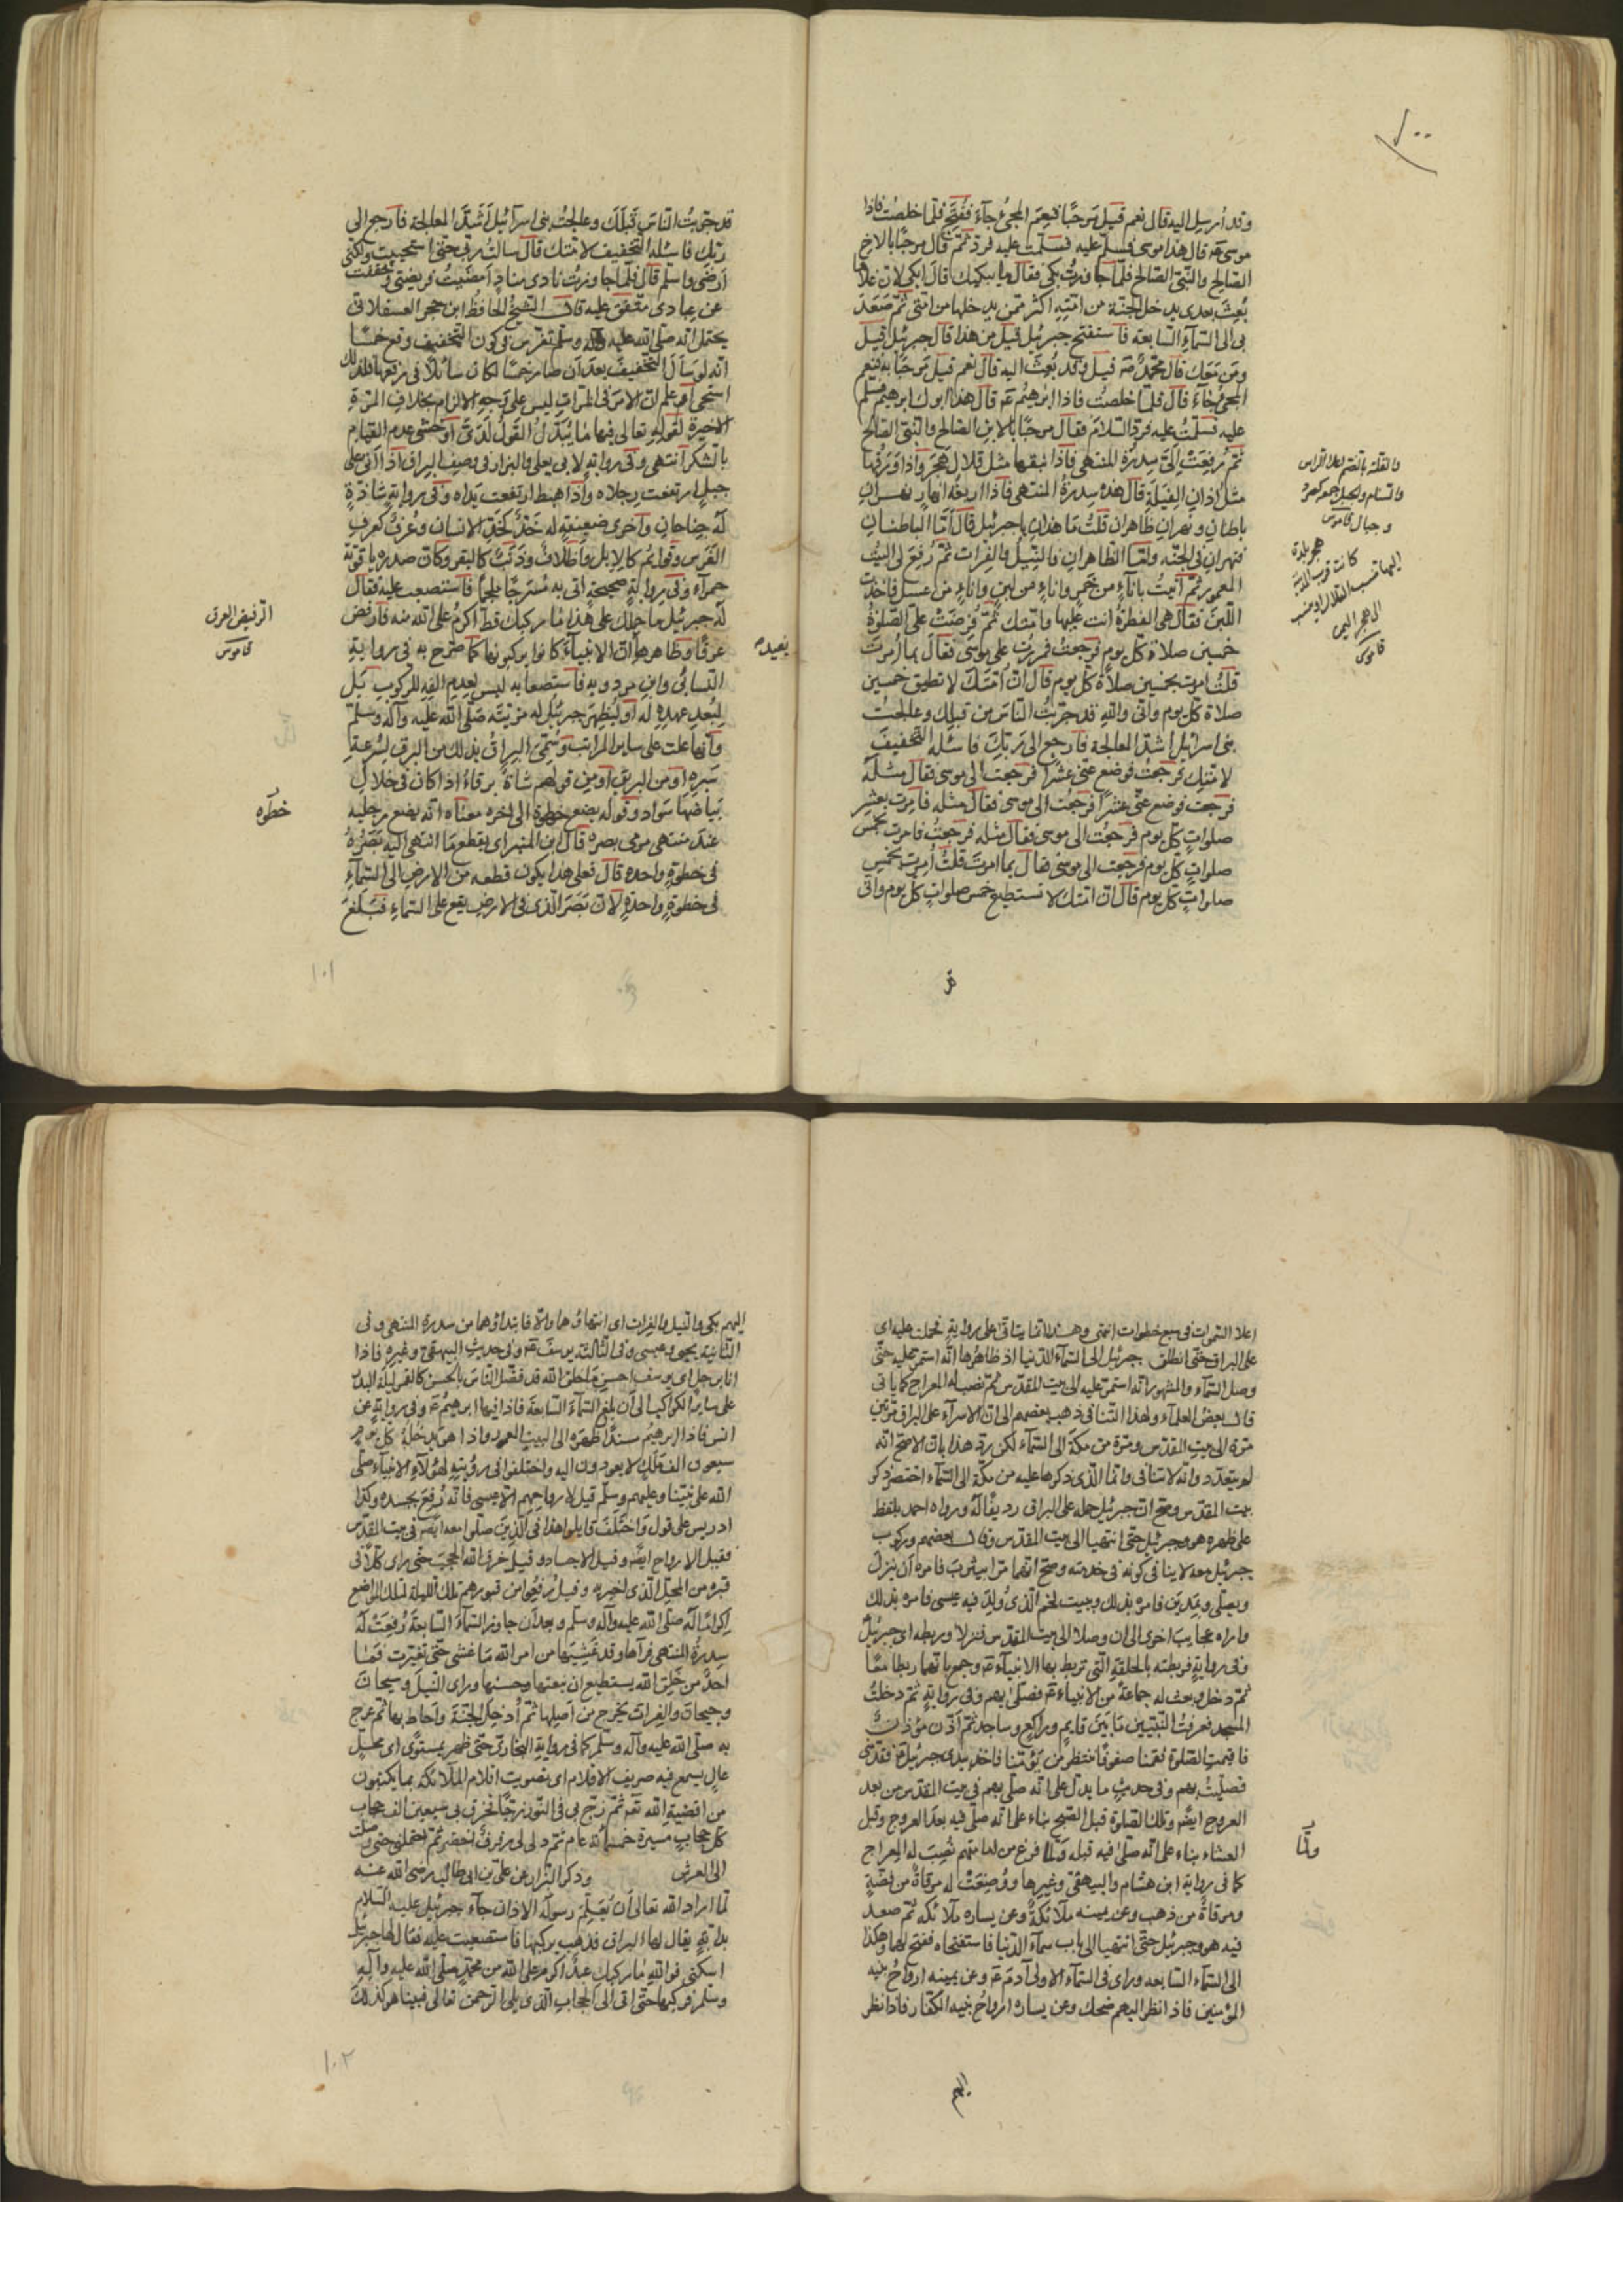 ١٠٠
وقد أرسل اليه قال نعم قيل مرحبًا فنعم المجئ جآء ففتح فلما خلصت فاذا
موسى قال هذا موسى فسلم عليه فسلمت عليه فرد ثم قال مرحبا بالاخ
الصالح والنبي الصالح فلما جاوزت بكى فقال ما يبكيك قال ابكى لان غلاما
بعث بعدى يدخل الجنة من امته اكثر ممن يدخلها من امتى ثم صعد
بى الى السمآء السابعة فاستفتح جبرئيل قيل من هذا قال جبرئيل قيل
ومن معك قال محمد قيل وقد بعث اليه قال نعم قيل مرحبًا به فنعم
المجئ جآء قال فلما خلصت فاذا ابرهيم قال هذا ابوك ابرهيم فسلم
عليه فسلمت عليه فرد السلام فقال مرحبًا بالابن الصالح والنبى الصالح
ثم رفعت الى سدرة المنتهى فاذا نبقها مثل قلال هجر واذا ورقها
مثل اذان الفيلة قال هذه سدرة المنتهى فاذا اربعة انهار نهران
باطنان ونهران ظاهران قلت ما هذان يا جبرئيل قال اما الباطنان
فنهران فى الجنة واما الظاهران فالنيل والفرات ثم رفع لى البيت
المعمور ثم أتيت بانآء من خمر واناء من لبن واناء من عسل فاخذت
اللبن فقال هى الفطرة انت عليها وامتك ثم فرضت على الصلوة
خمسين صلاة كل يوم فرجعت فمررت على موسى فقال بما أمرت
قلت امرت بخمسين صلاة كل يوم قال ان امتك لا تطيق خمسين
صلاة كل يوم وانى والله قد جربت الناس من قبلك وعالجت
بنى اسرائيل اشد المعالجة فارجع الى ربك فاسئله التخفيف
لامتك فرجعت فوضع عنى عشرا فرجعت الى موسى فقال مثله
فرجعت فوضع عنى عشرا فرجعت الى موسى فقال مثله فامرت بعشر
صلوات كل يوم فرجعت الى موسى فقال مثله فرجعت فامرت بخمس
صلوات كل يوم فرجعت الى موسى فقال بما امرت قلت أمرت بخمس
صلوات كل يوم قال ان امتك لا تستطيع خمس صلوات كل يوم وانى
والقلة بالضم اعلا الراس
والسنام والجبل
وجبال قاموس
هجر بلدة
كانت قرب المدينة
اليها تنسب القلال
قاموس
قد جربت الناس قبلك وعالجت بنى اسرآئيل اشد المعالجة فارجع الى
ربك فاسئله التخفيف لامتك قال سالت ربى حتى استحييت ولكنى
ارضى واسلم قال فلما جاوزت نادى مناد امضيت فريضتى وخففت
عن عبادى متفق عليه قال الشيخ الحافظ ابن حجر العسقلانى
يحتمل انه صلى الله عليه وآله وسلم تفرس فى كون التخفيف وقع خمسًا
انه لو سأل التخفيف بعد ان صار خمسًا لكان سائلاً فى رفعها فلذلك
استحى او علم ان الامر فى المرات ليس على وجه الالزام بخلاف المرة
الاخيرة لقوله تعالى فيها ما يبدل القول لدى او خشى عدم القيام
بالشكر انتهى وفى رواية لابى يعلى والبزار فى وصف البراق اذا اتى على
جبل ارتفعت رجلاه واذا هبط ارتفعت يداه وفى رواية شاذة
له جناحان واخرى ضعيفة له خد كخد الانسان وعرف كعرف
الفرس وقوائم كالابل واظلاف وذنب كالبقر وكان صدره ياقوتة
حمرآء وفى رواية صحيحة اتى به مسرجًا ملجمًا فاستصعب عليه فقال
له جبرئيل ما حملك على هذا ما ركبك قط اكرم على الله منه فارفض
عرقًا وظاهر ان الانبيآء كانوا يركبونها كما صرح به فى رواية
النسائى وابن مردويه فاستصعابه ليس لعدم الفه للركوب بل
لبعد عهده له او ليظهر جبرئيل له مرتبته صلى الله عليه وآله وسلم
وانها علت على ساير المراتب وسمى البراق بذلك من البرق لسرعة
سيره او من البريق او من قولهم شاة برقاء اذا كان فى خلال
بياضها سواد وقوله يضع خطوة الى اخره معناه انه يضع رجليه
عند منتهى مرمى بصره قال ابن المنير اى يقطع ما انتهى اليه بصره
فى خطوة واحدة قال فعلى هذا يكون قطعه من الارض الى السمآء
فى خطوة واحدة لان بصر الذى فى الارض يقع على السماء فبلغ
ارفض العرق
قاموس
خطوه
١٠١
اعلا السموات فى سبع خطوات انتهى وهذا انما يتاتى على رواية فحملت عليه اى
على البراق حتى انطلق جبرئيل الى السمآء الدنيا اذ ظاهرها انه استمر عليه حتى
وصل السمآء والمشهور انه استمر عليه الى بيت المقدس ثم نصب له المعراج كما ياتى
قال بعض العلمآء ولهذا التنافى ذهب بعضهم الى ان الاسرآء على البراق مرتين
مرة الى بيت المقدس ومرة من مكة الى السمآء لكن رد هذا بان الاصح انه
لم يتعدد وانه لا تنافى وانما الذى ذكرها عليه من مكة الى السمآء اختصر ذكر
بيت المقدس وصح ان جبرئيل حمله على البراق رديفًا له ورواه احمد بلفظ
على ظهره هو وجبرئيل حتى انتهيا الى بيت المقدس وقال بعضهم وركوب
جبرئيل معه لا ينافى كونه فى خدمته وصح انهما مرا بيثرب فامره ان ينزل
ويصلى وبمدين فامره بذلك وببيت لحم الذى ولد فيه عيسى فامره بذلك
واراه عجايب اخرى الى ان وصلا الى بيت المقدس فنزلا وربطه اى جبرئيل
وفى رواية فربطته بالحلقة التى تربط بها الانبيآء وجمع بانهما ربطا معًا
ثم دخل وبعث له جماعة من الانبياء فصلى بهم وفى رواية ثم دخلت
المسجد فعرفت النبيين ما بين قايم وراكع وساجد ثم أذن مؤذن
فاقيمت الصلوة فقمنا صفوفًا ننتظر من يؤمنا فاخذ بيدى جبرئيل فقدمنى
فصليت بهم وفى حديث ما يدل على انه صلى بهم فى بيت المقدس من بعد
العروج ايضًا وتلك الصلوة قبل الصبح بناء على انه صلى فيه بعد العروج وقيل
العشاء بناء على انه صلى فيه قبله ولما فرغ من امامتهم نصب له المعراج
كما فى رواية ابن هشام والبيهقى وغيرها ووضعت له مرقاة من فضة
ومرقاة من ذهب وعن يمينه ملآئكة وعن يساره ملآئكة ثم صعد
فيه هو وجبرئيل حتى انتهيا الى باب سمآء الدنيا فاستفتحاه ففتح لهما وهكذا
الى السمآء السابعة ورأى فى السمآء الاولى آدم وعن يمينه ارواح بنيه
المؤمنين فاذا نظر اليهم ضحك وعن يساره ارواح بنيه الكفار فاذا نظر
ولما
اليهم
اليهم بكى والنيل والفرات اى انتهاؤهما والا فابتداؤهما من سدرة المنتهى وفى
الثانية يحيى وعيسى وفى الثالثة يوسف وفى حديث البيهقى وغيره فاذا
انا برجل اى يوسف احسن ما خلق الله قد فضل الناس بالحسن كالقمر ليلة البدر
على ساير الكواكب الى ان بلغ السمآء السابعة فاذا فيها ابرهيم وفى رواية عن
انس فاذا ابرهيم مسندًا ظهره الى البيت المعمور واذا هو يدخله كل يوم
سبعون الف ملك لا يعودون اليه واختلفوا فى رؤيته لهؤلآء الانبيآء صلى
الله على نبينا وعليهم وسلم قيل لارواحهم الا عيسى فانه رفع بجسده وكذا
ادريس على قول واختلف قايلوا هذا فى الذين صلوا معه ايضا فى بيت المقدس
فقيل الارواح ايضًا وقيل الاجساد وقيل خرق الله الحجب حتى راى كلاً فى
قبره من المحل الذى اخبر به وقيل رفعوا من قبورهم تلك الليلة لتلك المواضع
اكرامًا له صلى الله عليه وآله وسلم وبعد ان جاوز السمآء السابعة رفعت له
سدرة المنتهى فرآها وقد غشيها من امر الله ما غشى حتى تغيرت فما
احد من خلق الله يستطيع ان ينعتها وحسنها وراى النيل وسيحان
وجيحان والفرات يخرج من اصلها ثم أدخل الجنة واحاط بها ثم عرج
به صلى الله عليه وآله وسلم كما فى رواية البخارى حتى ظهر بمستوى اى محل
عال يسمع فيه صريف الاقلام اى تصويت اقلام الملآئكة بما يكتبون
من اقضية الله ثم زج بى فى النور زجًا فخرق بى سبعين الف حجاب
كل حجاب مسيرة خمسمائة عام ثم دلى لى رفرف اخضر ثم احتملنى حتى وصلت
الى العرش وذكر البزار عن على بن ابى طالب رضى الله عنه
لما اراد الله تعالى ان يعلم رسوله الاذان جآء جبرئيل عليه السلام
بدابة يقال لها البراق فذهب يركبها فاستصعبت عليه فقال لها جبرئيل
اسكنى فوالله ما ركبك عبد اكرم على الله من محمد صلى الله عليه وآله
وسلم فركبها حتى اتى الى الحجاب الذى يلى الرحمن تعالى فبينا هو كذلك
١٠٢